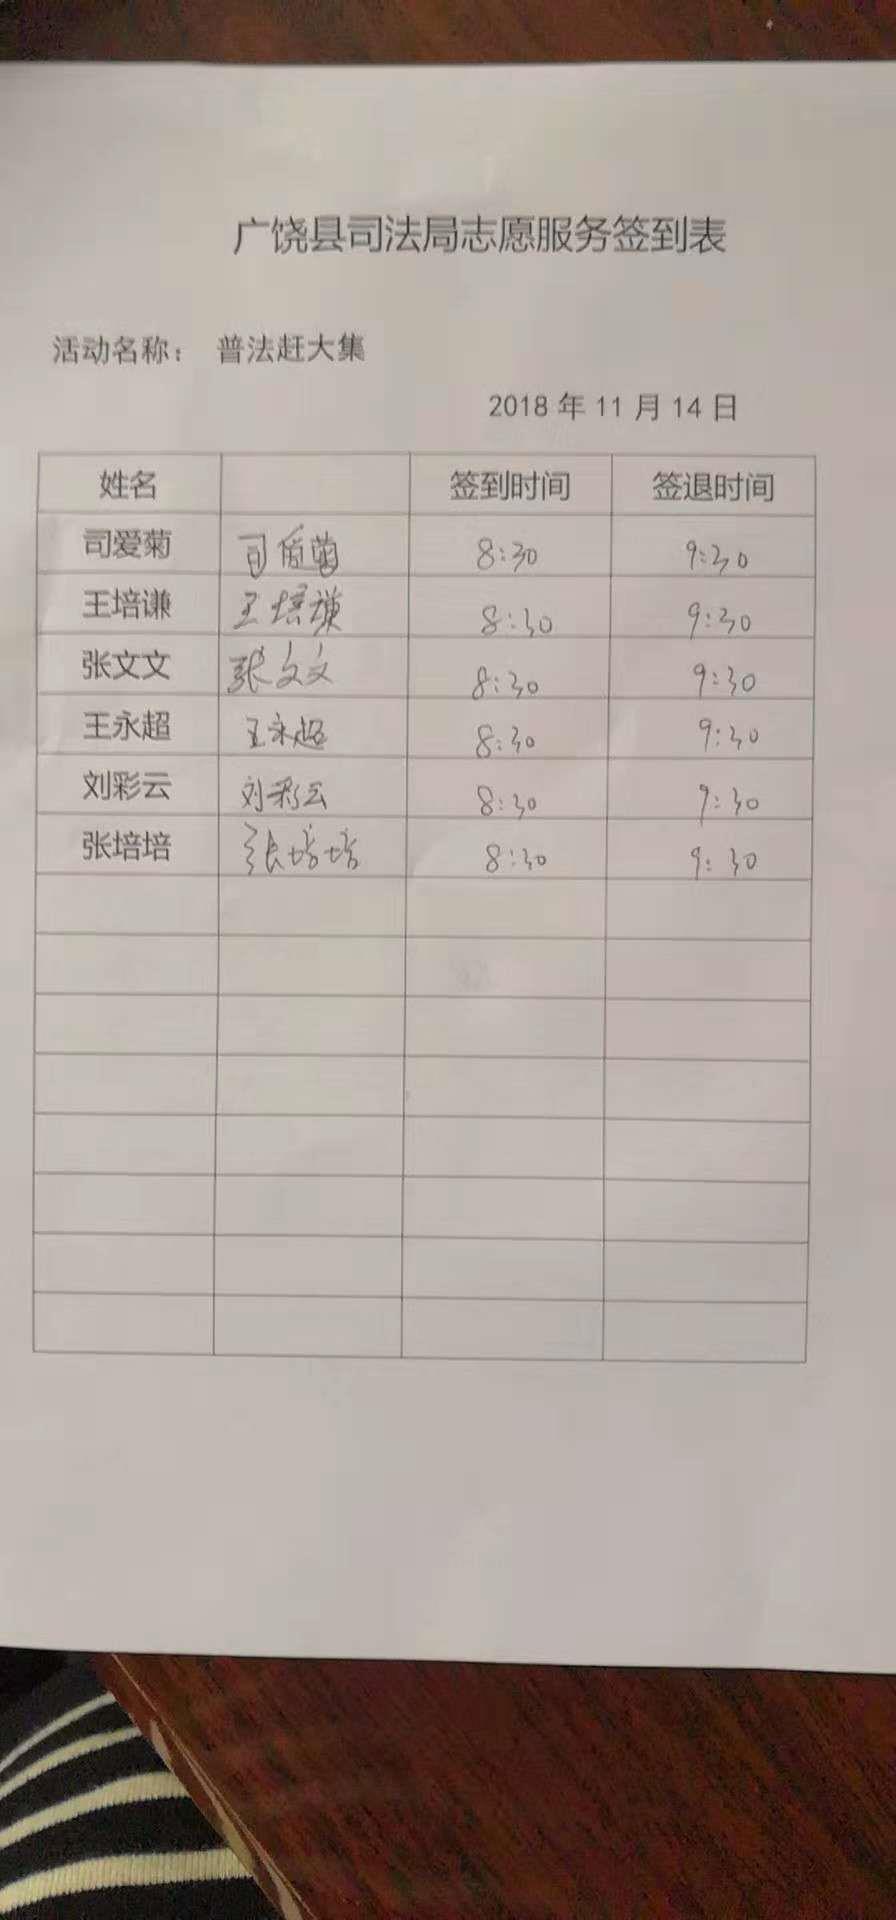 广饶县司法局志愿服务签到表
活动名称： 普法赶大集
2018 年 11 月 14 日
姓名 签到时间 签退时间
司爱菊 司爱菊 8:30 9:30
王培谦 王培谦 8:30 9:30
张文文 张文文 8:30 9:30
王永超 王永超 8:30 9:30
刘彩云 刘彩云 8:30 9:30
张培培 张培培 8:30 9:30